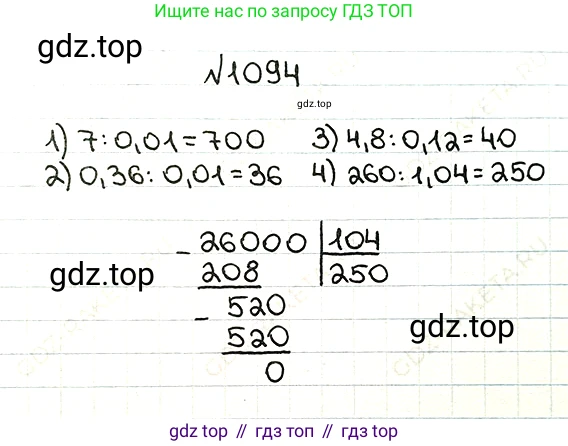 Ищите нас по запросу ГДЗ ТОП
gdz.top
№1094
gdz.top
1) 7 : 0,01 = 700 3) 4,8 : 0,12 = 40
2) 0,36 : 0,01 = 36 4) 260 : 1,04 = 250
- 26000 | 104
208 | 250
gdz.top
- 520
520
gdz.top
0
gdz.top // гдз.топ // гдз топ